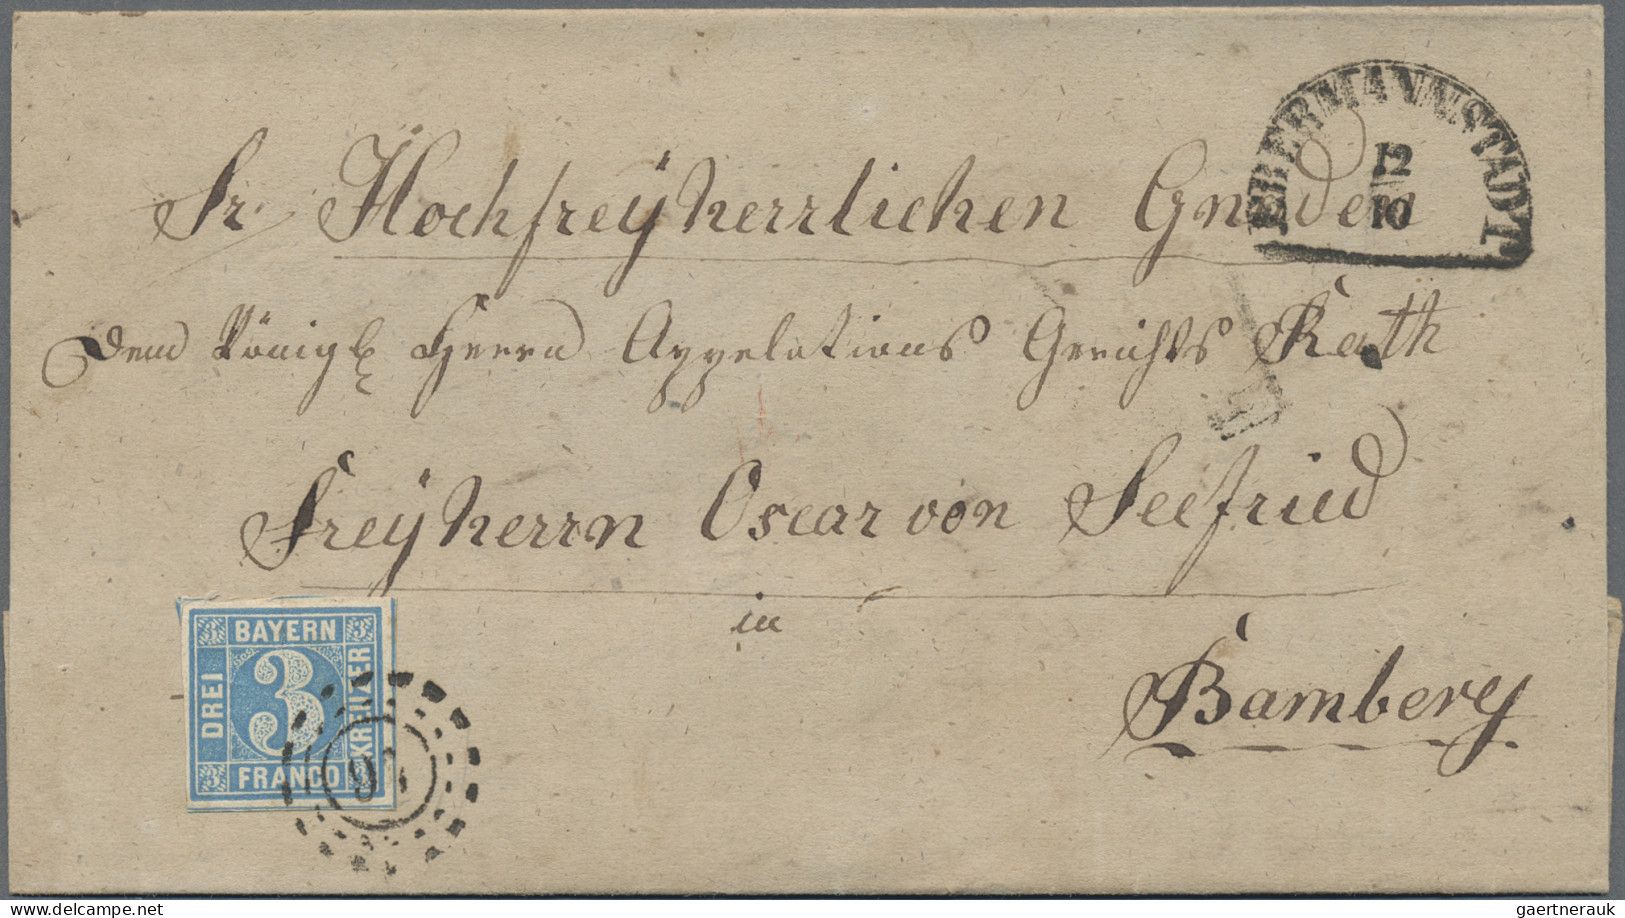 EBERMANNSTADT
12
10
Sr. Hochfreyherrlichen Gnaden
dem Königl. Herrn Appelations Gerichts Rath
Freyherrn Oscar von Seefried
in
Bamberg
BAYERN
DREI
3
KREUZER
FRANCO
3
3
3
3
delcampe.net
gaertnerauk